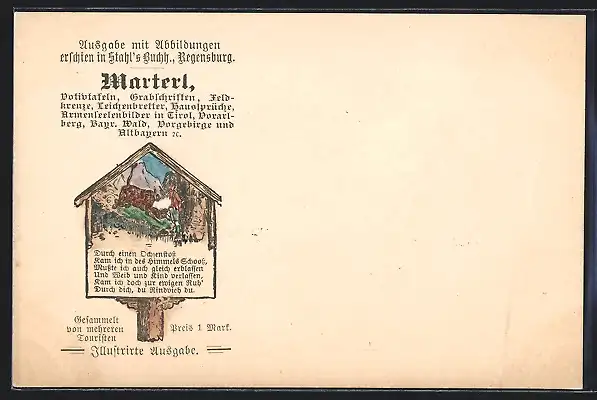 Ausgabe mit Abbildungen
erschien in Stahl's Buchh., Regensburg.
Marterl,
Votivtafeln, Grabschriften, Feld-
kreuze, Leichenbretter, Haussprüche,
Armenseelenbilder in Tirol, Vorarl-
berg, Bayr. Wald, Vorgebirge und
Altbayern ꝛc.
Durch einen Ochsenstoß
Kam ich in des Himmels Schooß,
Mußte ich auch gleich erblassen
Und Weib und Kind verlassen,
Kam ich doch zur ewigen Ruh'
Durch dich, du Rindvieh du.
Gesammelt
von mehreren
Touristen
Preis 1 Mark.
Illustrirte Ausgabe.